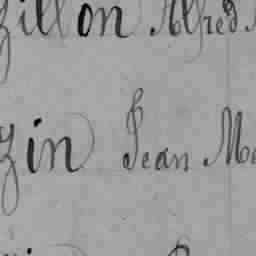 zillon Alfred
zin Jean Ma